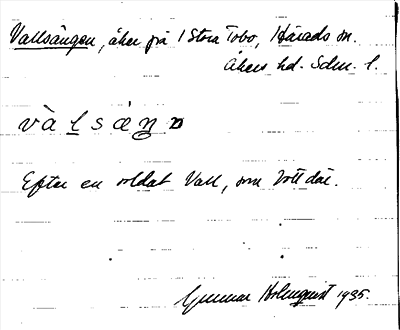 Vallsängen, åker på 1 Stora Tobo, Härads sn.
Åkers hd. Sdm. l.
Efter en soldat Vall, som bott där.
Gunnar Holmquist 1935.